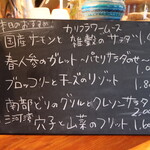 本日のおすすめ
カリフラワームース
国産サーモンと雑穀のサラダ
春人参のガレット 〜パセリサラダのせ〜
ブロッコリーとチーズのリゾット 1.8
南部どりのグリルとクレソンサラダ
2.60
三河湾 穴子と山菜のフリット 1.60